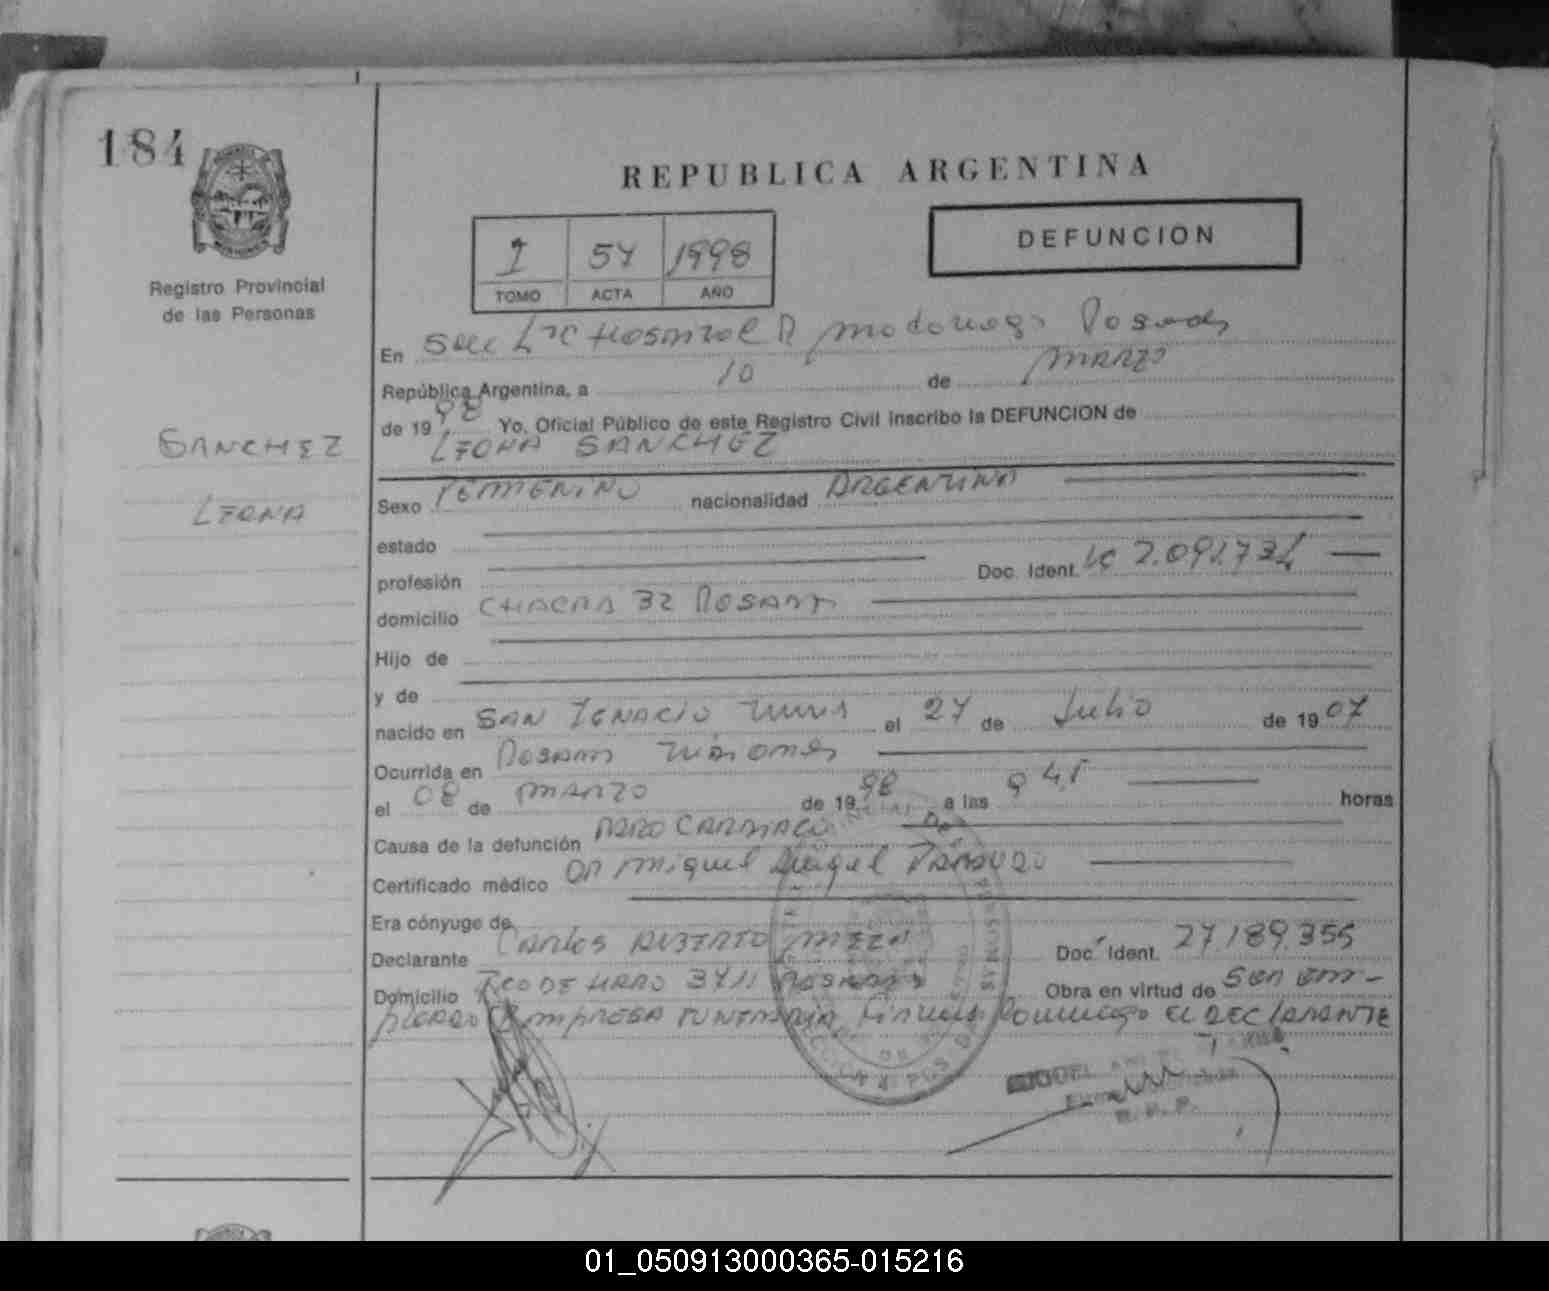 184
REPUBLICA ARGENTINA
I 57 1998
TOMO ACTA AÑO
DEFUNCION
Registro Provincial
de las Personas
SANCHEZ
En Secc Hospital R Madariaga Posadas
República Argentina, a 10 de MARZO
de 19 98 Yo, Oficial Público de este Registro Civil inscribo la DEFUNCION de
SANCHEZ
Sexo FEMENINO nacionalidad ARGENTINA
estado
profesión Doc. Ident. LC 2.091.731
domicilio CHACRA 32 POSADAS
Hijo de
y de
nacido en SAN IGNACIO el 27 de Julio de 19 07
Ocurrida en POSADAS Misiones
el 08 de MARZO de 19 98 a las 9 45 horas
Causa de la defunción PARO CARDIACO
Certificado médico DR Miguel Angel
Era cónyuge de
Declarante CARLOS ALBERTO MEZA Doc. Ident. 27189.355
Domicilio 3711 POSADAS Obra en virtud de Ser em-
pleado Empresa FUNERARIA EL DECLARANTE
01_050913000365-015216